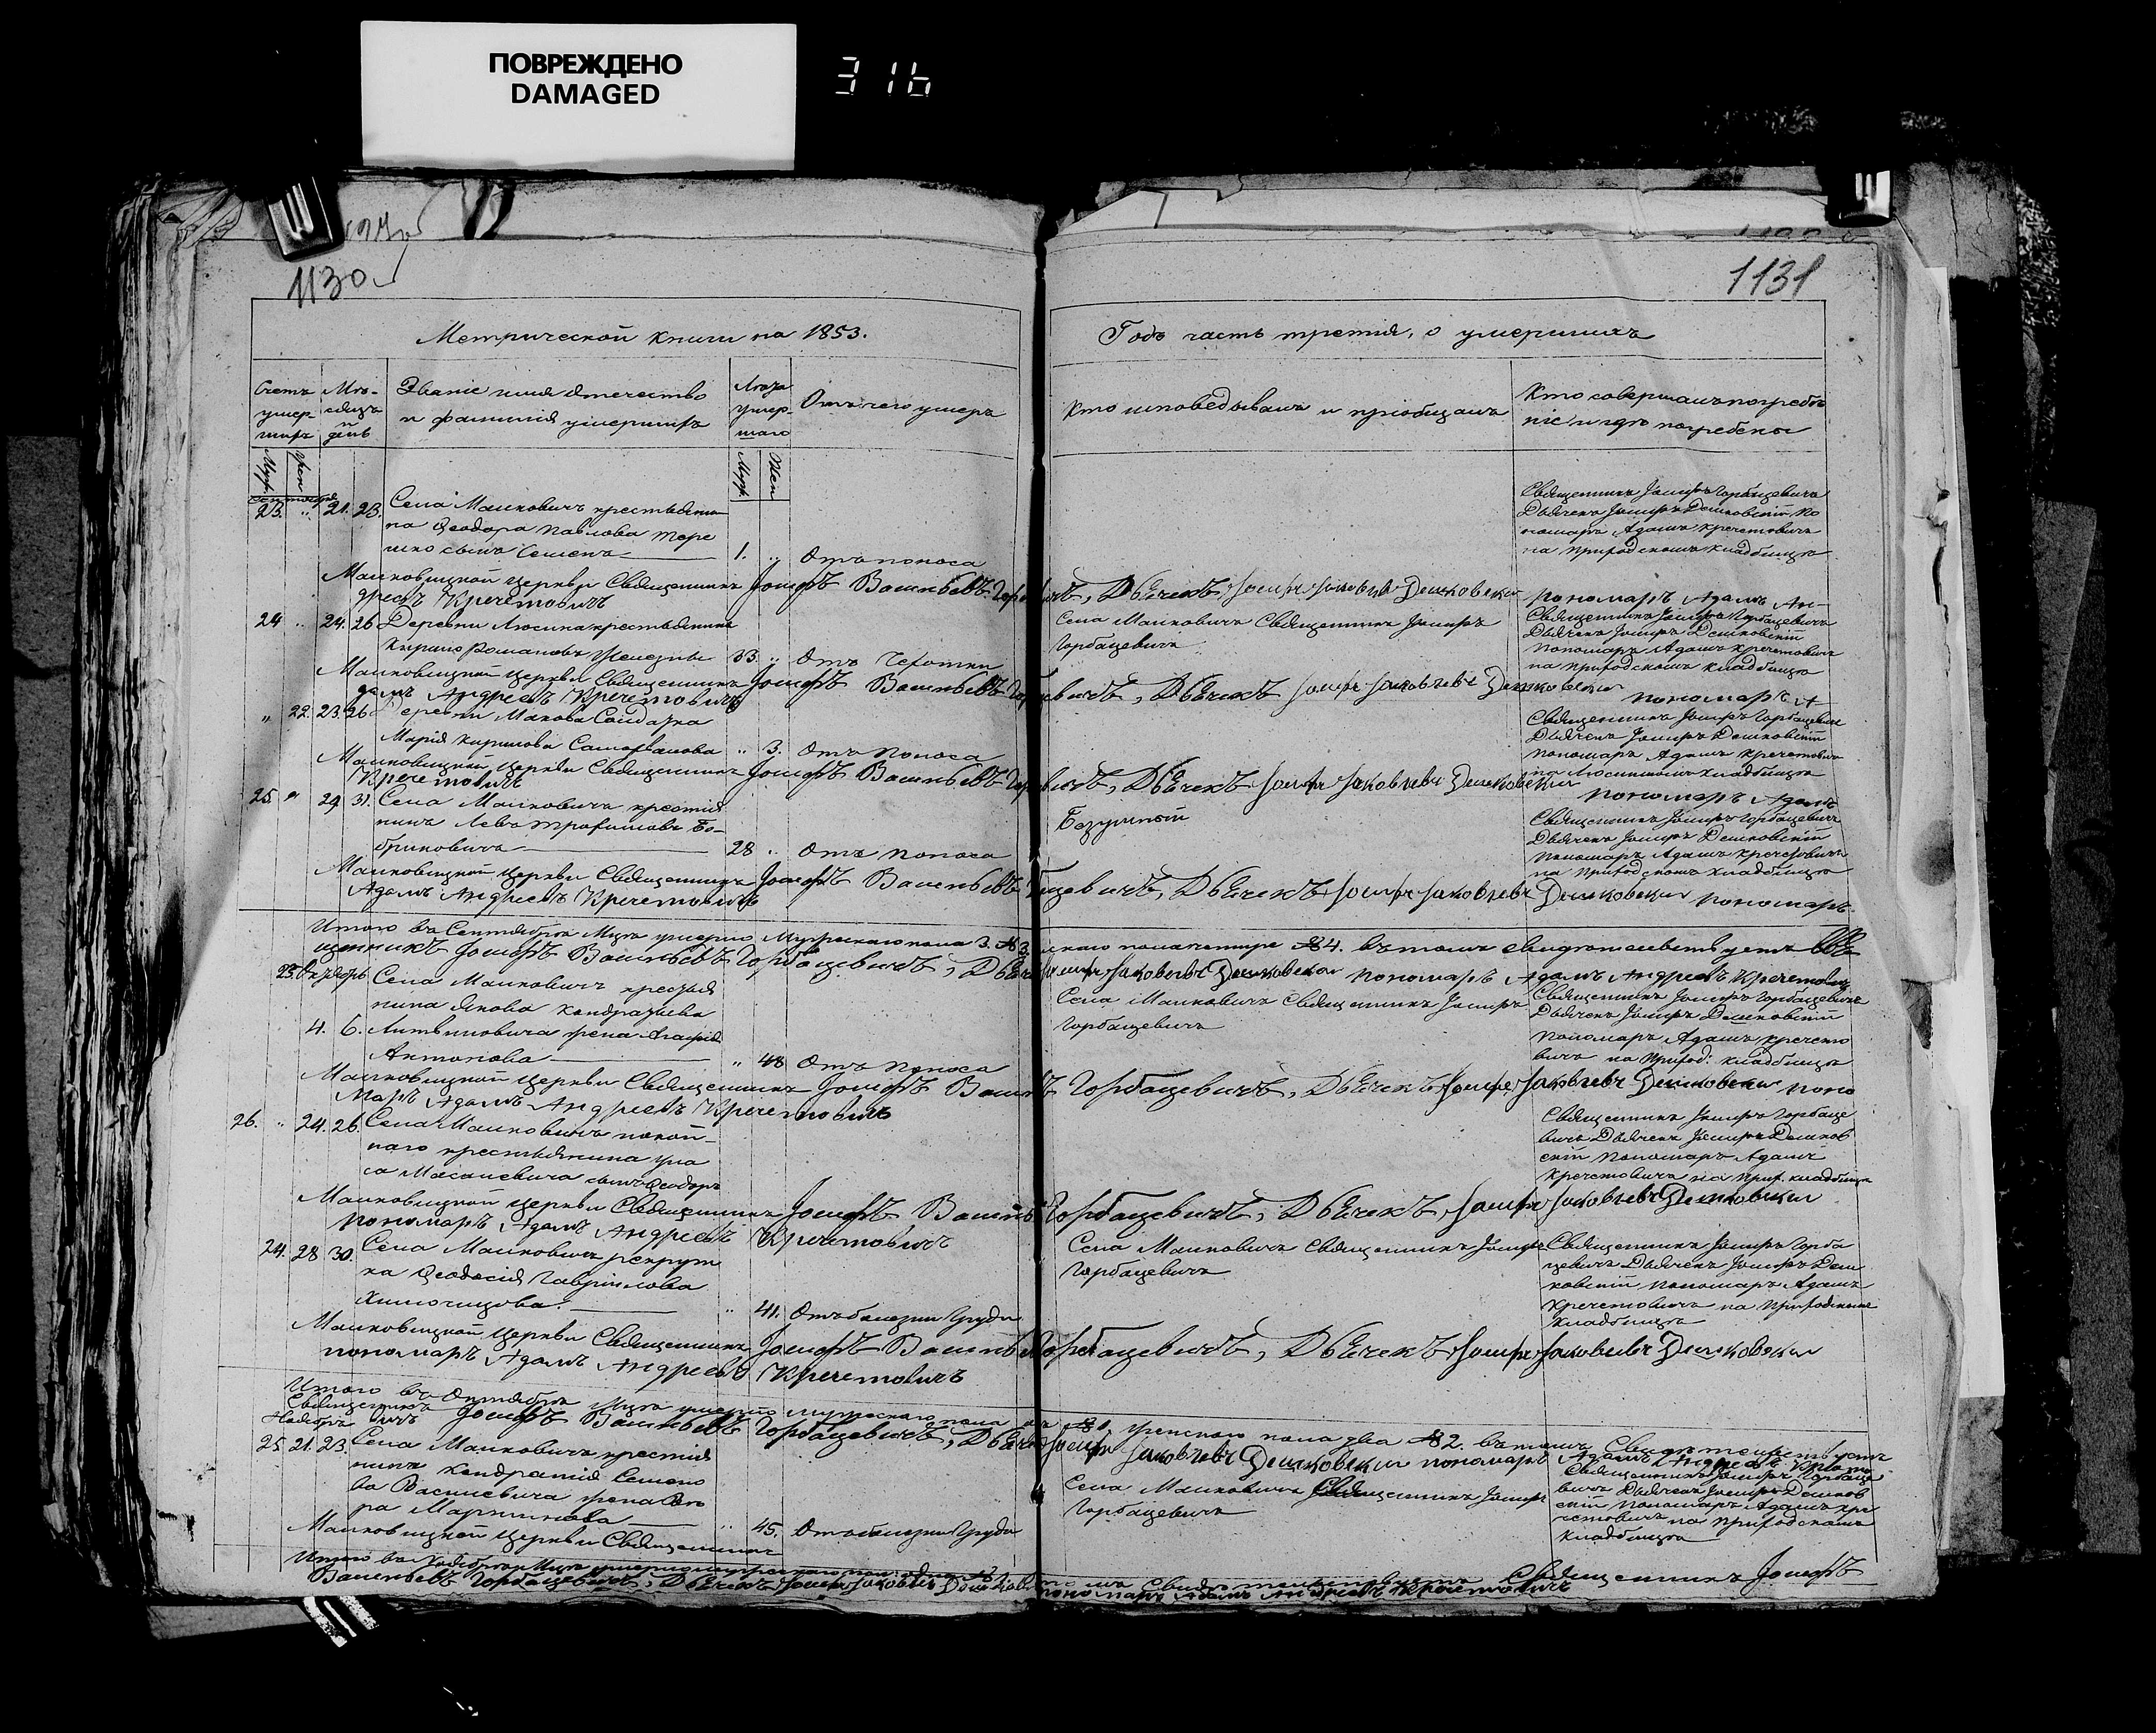 ПОВРЕЖДЕНО
DAMAGED
316
1130
1131
Метрической книги на 1853.
Годъ часть третія, о умершихъ
Счетъ умер-
Мѣ-сяцъ и день
Званіе имя отечество
и фамилія умершихъ
Лѣта умер-шаго
Отъ чего умеръ
Кто исповедывалъ и пріобщалъ
Кто совершалъ погребе
ніе и гдѣ погребены
Муж.
Жен
Муж.
Жен
23. " 21. 23.
Села Малковичъ крестьяни
на Ѳеодора Павлова Тере
шко сынъ Семенъ
1. " Отъ поноса
Священникъ Іосифъ Горбацевичъ
Дьячекъ Іосифъ Демковскій По
номаръ Адамъ Кречетовичъ
на приходскомъ кладбищѣ
Малковицкой церкви Священникъ Іосифъ Васильевъ Дьячекъ Іосифъ Яковлевъ Пономаръ Адамъ Ан-
дреевъ Кречетовичъ
24 " 24. 26
Деревни Люсина крестьянинъ
33. " Отъ Чехотки
Села Малковичъ Священникъ Іосифъ
Горбацевичъ
Священникъ Іосифъ Горбацевичъ
Дьячекъ Іосифъ Демковскій
Пономаръ Адамъ Кречетовичъ
на приходскомъ кладбищѣ
Малковицкой церкви Священникъ Іосифъ Васильевъ Дьячекъ Іосифъ Яковлевъ Пономаръ А-
дамъ Андреевъ Кречетовичъ
" 22. 23. 26
Деревни
Марія Кирилова
" 3. Отъ поноса
Священникъ Іосифъ Горбацевичъ
Дьячекъ Іосифъ Демковскій
Пономаръ Адамъ Кречетовичъ
на Люсинскомъ кладбищѣ
Малковицкой церкви Священникъ Іосифъ Васильевъ Дьячекъ Іосифъ Яковлевъ Пономаръ Адамъ
Кречетовичъ
25 " 29 31.
Села Малковичъ крестья
нинъ Левъ Трофимовъ Бо-
бриковичъ
28 " Отъ поноса
Священникъ Іосифъ Горбацевичъ
Дьячекъ Іосифъ Демковскій
Пономаръ Адамъ Кречетовичъ
на Приходскомъ кладбищѣ
Малковицкой церкви Священникъ Іосифъ Васильевъ Дьячекъ Іосифъ Яковлевъ Пономаръ
Адамъ Андреевъ Кречетовичъ
Итого въ Сентябрѣ Мцѣ умерло Мужескаго пола 3. №3 пола четыре №4. въ томъ свидѣтельствуетъ Свя
щенникъ Іосифъ Васильевъ Горбацевичъ, Іосифъ Яковлевъ Пономаръ Адамъ Андреевъ Кречетовичъ
4. 6.
Села Малковичъ крестья
нина Якова Кондратьева
Литвиновича жена Агафія
Антонова
" 48 Отъ поноса
Села Малковичъ Священникъ Іосифъ
Горбацевичъ
Священникъ Іосифъ Горбацевичъ
Дьячекъ Іосифъ Демковскій
Пономаръ Адамъ Кречето
вичъ на Приход: кладбищѣ
Малковицкой церкви Священникъ Іосифъ Горбацевичъ, Дьячекъ Іосифъ Яковлевъ Поно
маръ Адамъ Андреевъ Кречетовичъ
26. " 24. 26.
Села Малковичъ покой-
наго крестьянина
Священникъ Іосифъ Горбаце
вичъ Дьячекъ Іосифъ Демков
скій Пономаръ Адамъ
Кречетовичъ на Прих. кладбищѣ
Малковицкой церкви Священникъ Іосифъ Горбацевичъ, Дьячекъ Іосифъ Яковлевъ
Пономаръ Адамъ Андреевъ Кречетовичъ
24. 28 30.
Села Малковичъ рекрут
ка Ѳеодосія Гавріилова
" 41. Отъ болезни Груди
Села Малковичъ Священникъ Іосифъ
Горбацевичъ
Священникъ Іосифъ Горба
цевичъ Дьячекъ Іосифъ Дем
ковскій Пономаръ Адамъ
Кречетовичъ на Приходскомъ
кладбищѣ
Малковицкой церкви Священникъ Іосифъ Горбацевичъ, Дьячекъ Іосифъ Яковлевъ
Пономаръ Адамъ Андреевъ Кречетовичъ
Итого въ Октябрѣ Мцѣ умерло мужескаго пола №1, женскаго пола два №2. въ томъ Свидѣтельствуетъ
Священникъ Іосифъ Васильевъ Горбацевичъ, Іосифъ Яковлевъ Пономаръ Адамъ Андреевъ
25. 21. 23.
Села Малковичъ крестья
нина Кондратія Семено
ва Василевича жена
Мартинова
" 45. Отъ болезни Груди
Села Малковичъ Священникъ Іосифъ
Горбацевичъ
Священникъ Іосифъ Горбаце
вичъ Дьячекъ Іосифъ Демков
скій Пономаръ Адамъ Кре
четовичъ на Приходскомъ
кладбищѣ
Малковицкой церкви Священникъ
Итого въ Ноябрѣ Мцѣ умерло Священникъ Іосифъ
Васильевъ Горбацевичъ, Дьячекъ Іосифъ Яковлевъ Пономаръ Адамъ Андреевъ Кречетовичъ